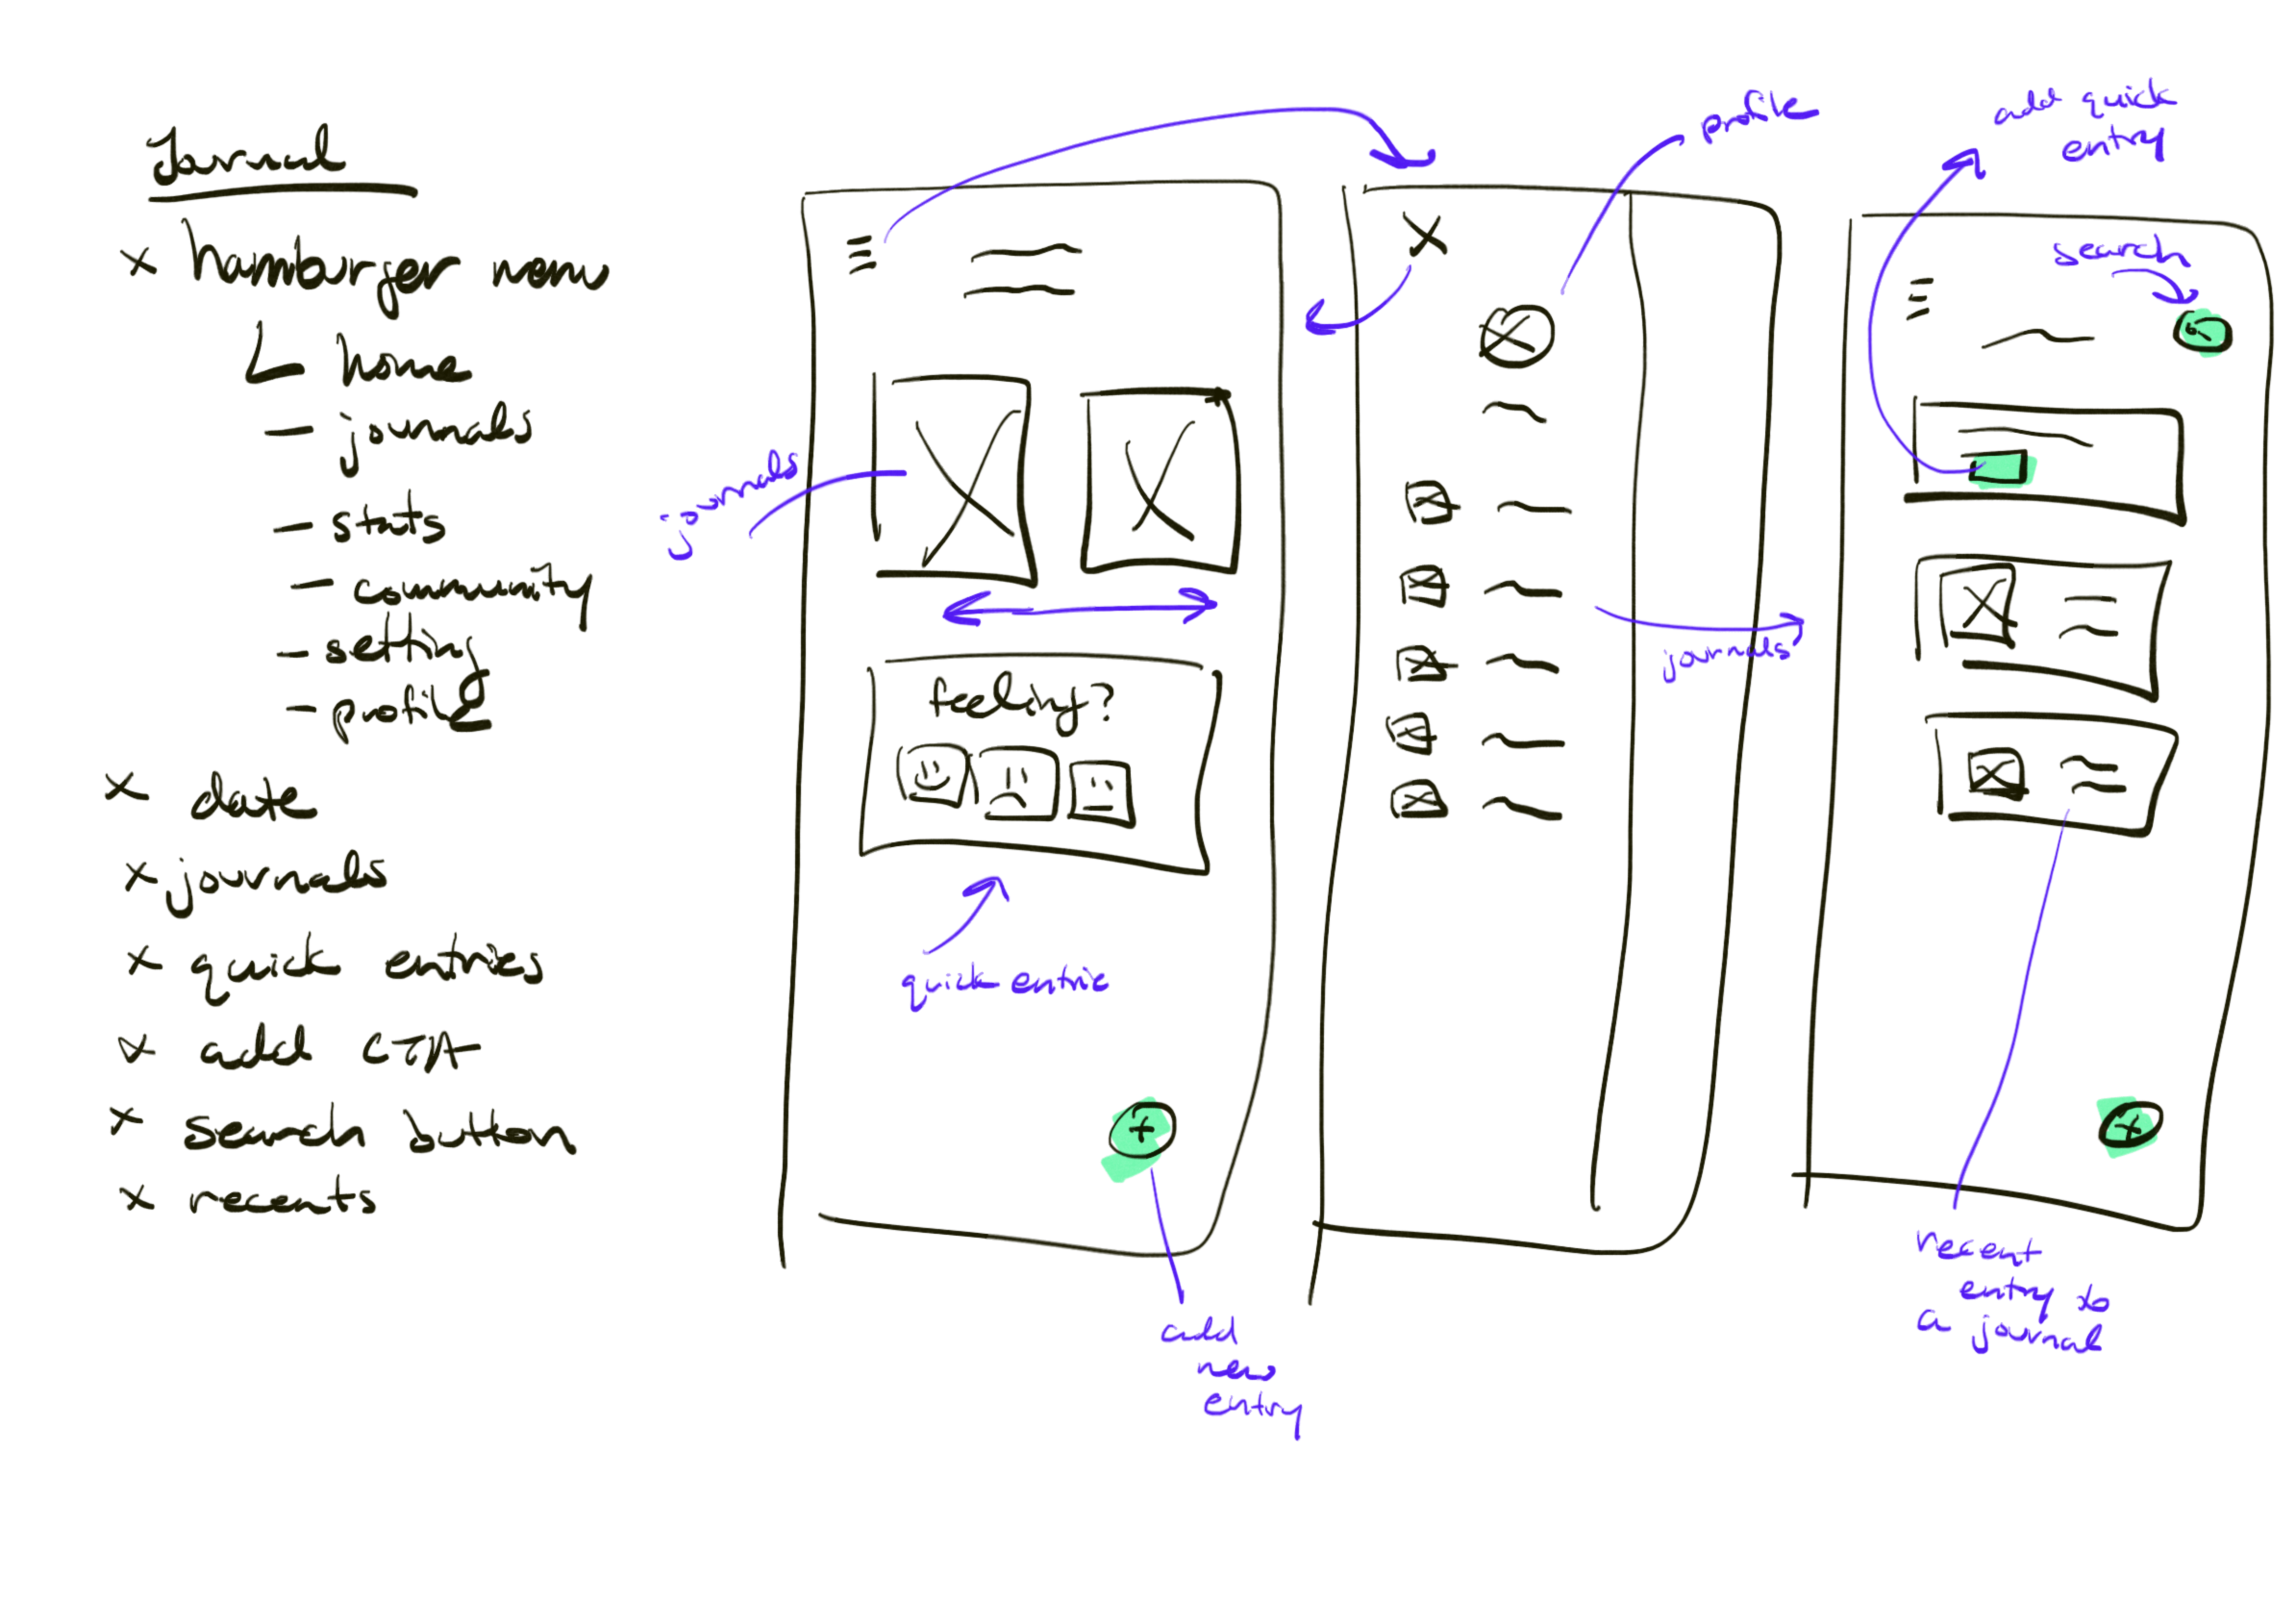 Journal
x hamburger menu
home
- journals
- stats
- community
- setting
- profile
x date
x journals
x quick entries
x add CTA
x search button
x recents
journals
feeling?
quick entrie
+
add
new
entry
X
profile
journals
add quick
entry
search
+
recent
entry to
a journal